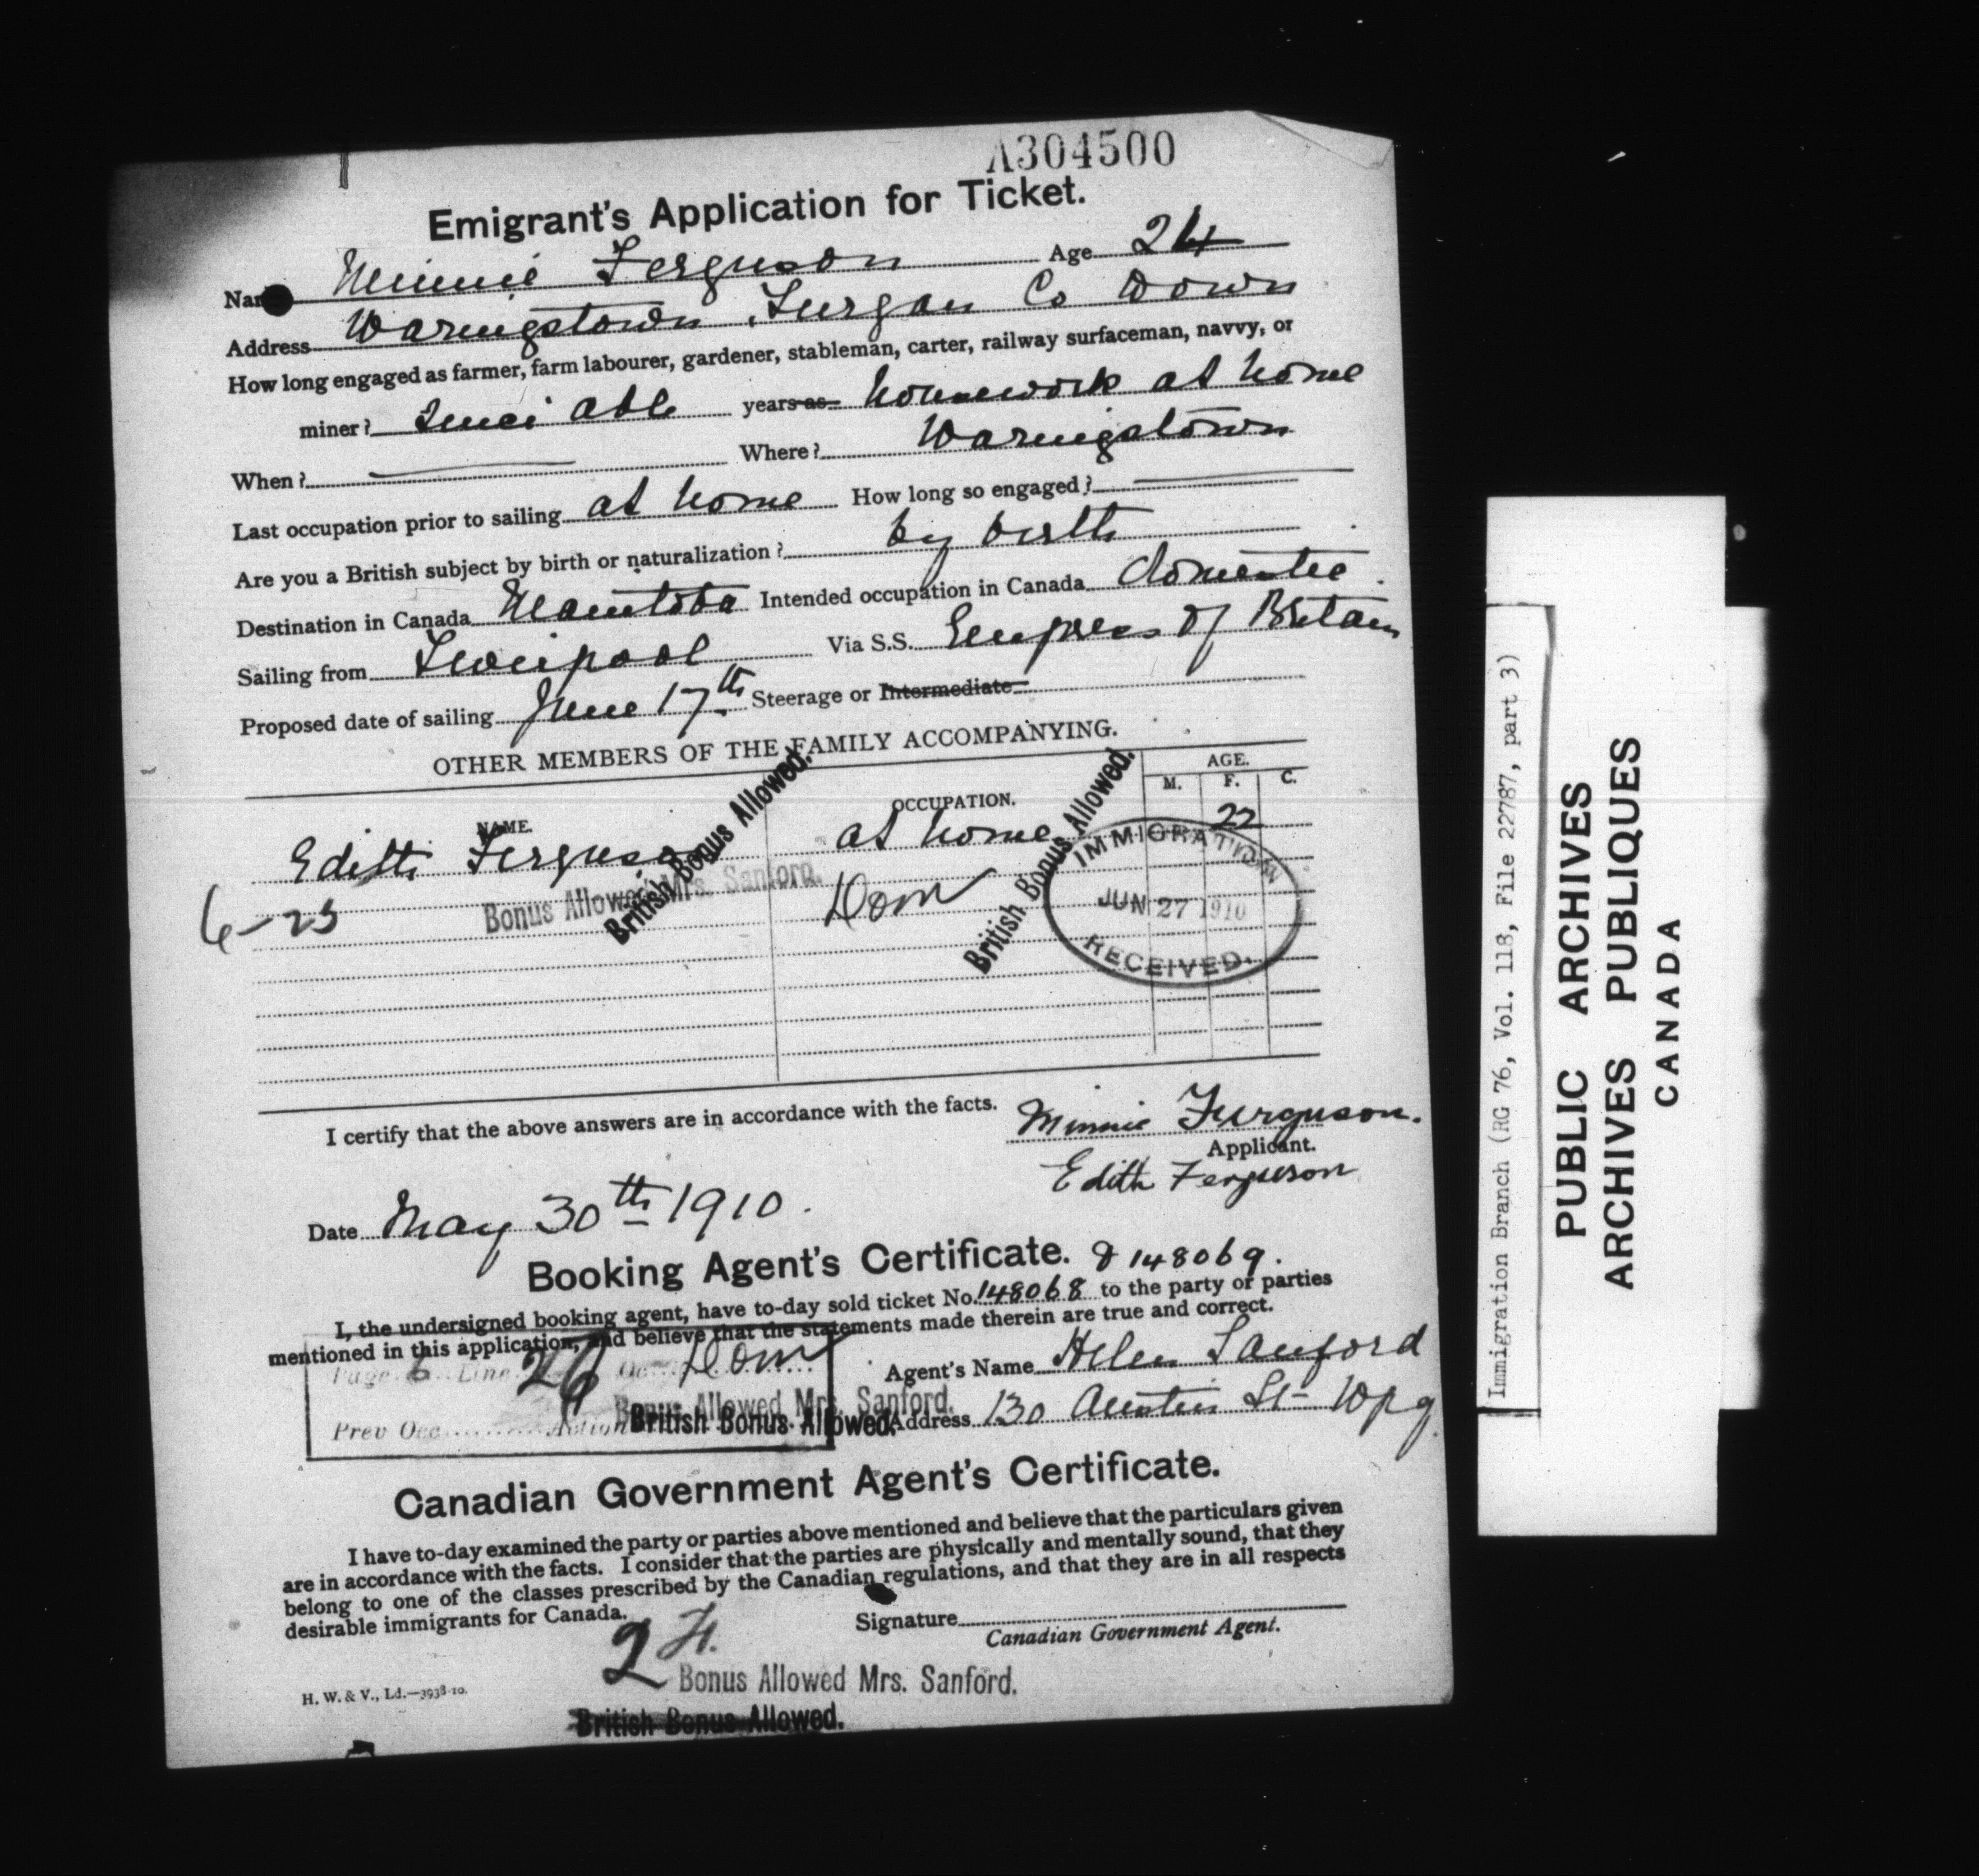 A304500
Emigrant's Application for Ticket.
Name Minnie Ferguson Age 24
Address Waringstown, Lurgan Co Down
How long engaged as farmer, farm labourer, gardener, stableman, carter, railway surfaceman, navvy, or
miner? Since able years as housework at home
When? Where? Waringstown
Last occupation prior to sailing at home How long so engaged?
Are you a British subject by birth or naturalization? by birth
Destination in Canada Manitoba Intended occupation in Canada domestic.
Sailing from Liverpool Via S.S. Empress of Britain
Proposed date of sailing June 17th Steerage or Intermediate
OTHER MEMBERS OF THE FAMILY ACCOMPANYING.
NAME. OCCUPATION. AGE.
M. F. C.
Edith Ferguson at home 22
6-23 Dom
Bonus Allowed Mrs. Sanford.
British Bonus Allowed.
British Bonus Allowed.
IMMIGRATION
JUN 27 1910
RECEIVED.
I certify that the above answers are in accordance with the facts. Minnie Ferguson.
Applicant.
Edith Ferguson
Date May 30th 1910.
Booking Agent's Certificate. & 148069.
I, the undersigned booking agent, have to-day sold ticket No. 148068 to the party or parties
mentioned in this application, and believe that the statements made therein are true and correct.
Page 6 Line 26 Oc Dom
Agent's Name Helen Sanford
Bonus Allowed Mrs. Sanford.
Prev Occ Action British Bonus Allowed. Address 130 Austin St- Wpg.
Canadian Government Agent's Certificate.
I have to-day examined the party or parties above mentioned and believe that the particulars given
are in accordance with the facts. I consider that the parties are physically and mentally sound, that they
belong to one of the classes prescribed by the Canadian regulations, and that they are in all respects
desirable immigrants for Canada.
Signature
Canadian Government Agent.
2 F.
Bonus Allowed Mrs. Sanford.
H. W. & V., Ld.—3938-10.
British Bonus Allowed.
Immigration Branch (RG 76, Vol. 118, File 22787, part 3)
PUBLIC ARCHIVES
ARCHIVES PUBLIQUES
CANADA